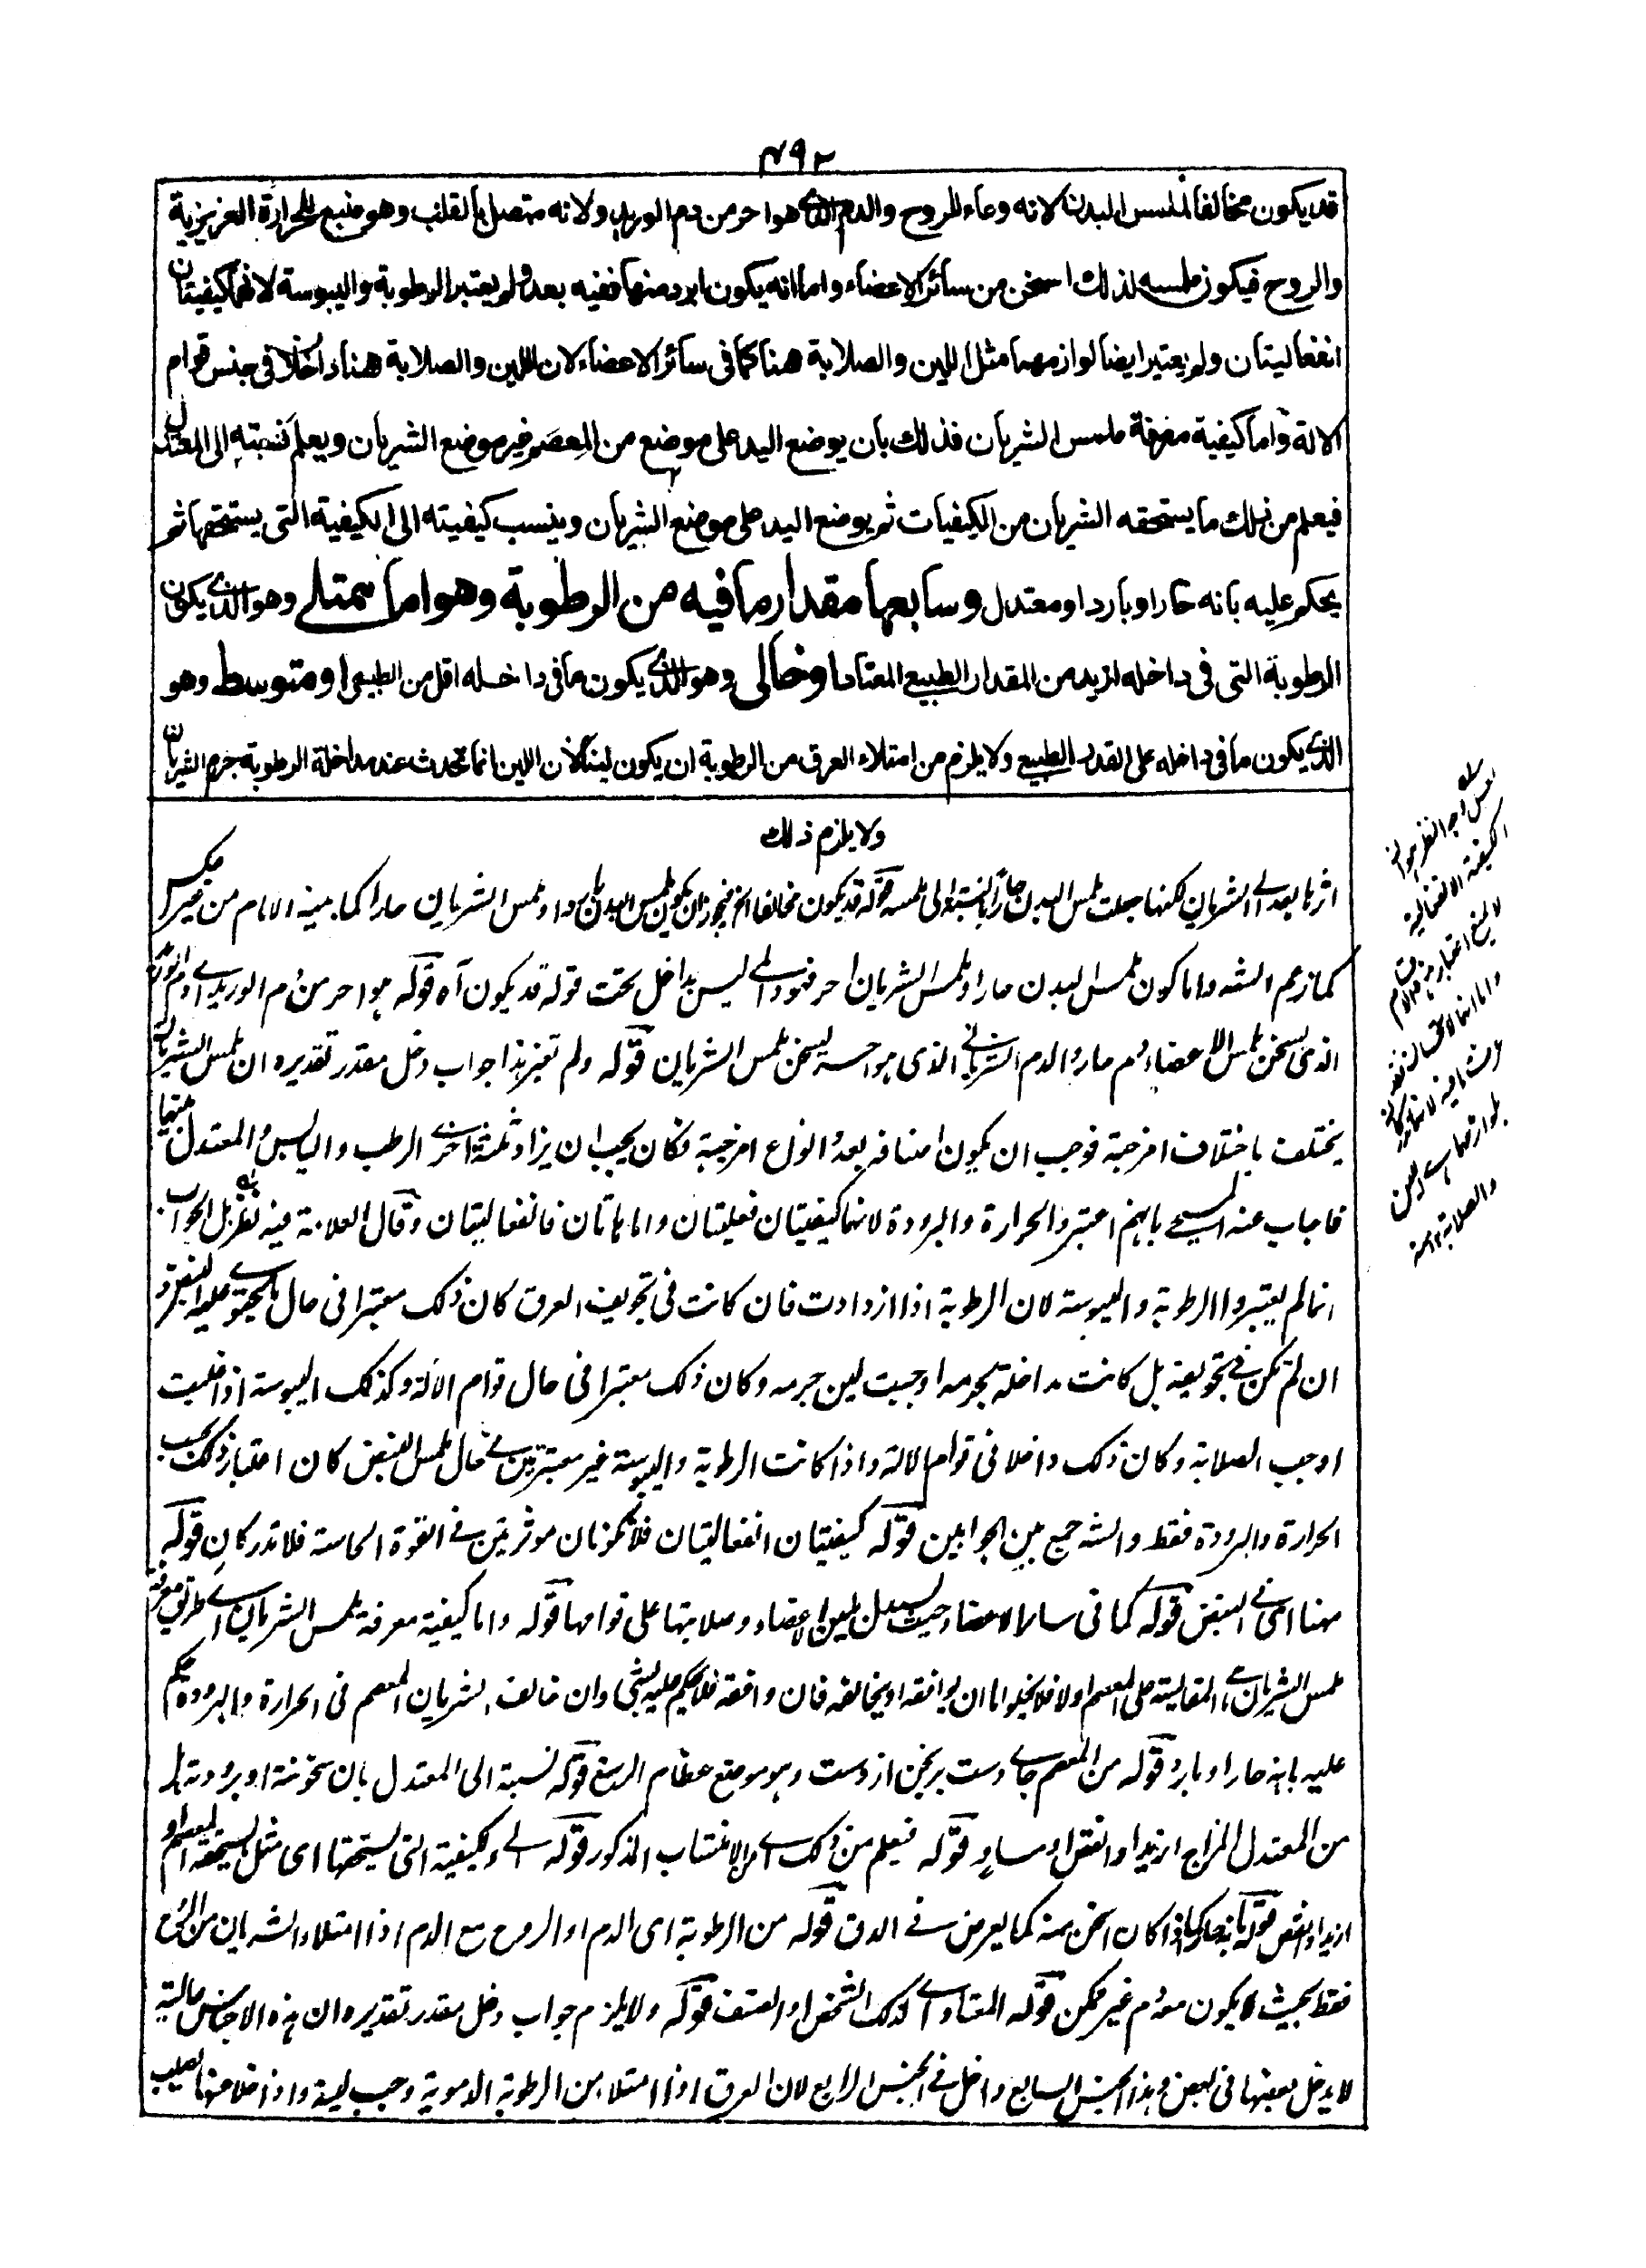 ٤٩٢
قد يكون مخالفا لملمس البدن لانه وعاء للروح والدم الذى هو احر من دم الوريد ولانه متصل بالقلب وهو منبع للحرارة الغريزية
والروح فيكون ملمسه لذلك اسخن من سائر الاعضاء واما انه يكون ابرد منها ففيه بعد ولم يعتبر الرطوبة واليبوسة لانهما كيفيتان
انفعاليتان ولم يعتبر ايضا لوازمهما مثل اللين والصلابة هنا كما فى سائر الاعضاء لان اللين والصلابة هنا داخلا فى جنس قوام
الالة واما كيفية معرفة ملمس الشريان فذلك بان يوضع اليد على موضع من المعصم غير موضع الشريان ويعلم نسبته الى المعتدل
فيعلم من ذلك ما يستحقه الشريان من الكيفيات ثم يوضع اليد على موضع الشريان وينسب كيفيته الى الكيفية التى يستحقها ثم
يحكم عليه بانه حار او بارد او معتدل وسابعها مقدار ما فيه من الرطوبة وهو اما ممتلى وهو الذى يكون
الرطوبة التى فى داخله ازيد من المقدار الطبيع المعتاد او خالى وهو الذى يكون ما فى داخله اقل من الطبيعى او متوسط وهو
الذى يكون ما فى داخله على القدر الطبيع ولا يلزم من امتلاء العرق من الرطوبة ان يكون لينا لان اللين انما تحدث عند مداخلة الرطوبة جرم الشريان
ولا يلزم ذلك
اثرها بعد الى الشريان لكنها جعلت ملمس البدن حارا بالنسبة الى ملمسه قوله قد يكون مخالفا الخ فيجوز ان يكون ملمس البدن باردا وملمس الشريان حارا كما بينه الامام من غير عكس
كما زعم الشه واما كون ملمس البدن حارا وملمس الشريان احر فهو ليس بداخل تحت قوله قد يكون آه قوله هو احر من دم الوريد اى دم الوريد
الذى يسخن ملمس الاعضاء دم حار والدم الشريانى الذى هو احر يسخن ملمس الشريان قوله ولم تعتبر هذا جواب دخل مقدر تقديره ان ملمس الشريان
يختلف باختلاف امزجة فوجب ان يكون اصنافه بعدد انواع امزجته فكان يجب ان يزاد ثلثة اخرى الرطب واليابس والمعتدل منهما
فاجاب عنه المسيحى بانهم اعتبروا الحرارة والبرودة لانهما كيفيتان فعليتان واما هاتان فانفعاليتان وقال العلامة فيه نظر بل الجواب انه
انما لم يعتبروا الرطوبة واليبوسة لان الرطوبة اذا ازدادت فان كانت فى تجويف العرق كان ذلك معتبرا فى حال ما يحتوى عليه النبض و
ان لم تكن فى تجويفه بل كانت مداخلة لجرمه اوجبت لين جرمه وكان ذلك معتبرا فى حال قوام الالة وكذلك اليبوسة اذا غلبت
اوجب الصلابة وكان ذلك داخلا فى قوام الالة واذا كانت الرطوبة واليبوسة غير معتبرتين فى حال ملمس النبض كان اعتبار ذلك بحسب
الحرارة والبرودة فقط والشه جمع بين الجوابين قوله كيفيتان انفعاليتان فلا تكونان موثرتين فى القوة الحاسة فلا تدركان قوله
ههنا اى فى النبض قوله كما فى سائر الاعضاء حيث يستدل بلين الاعضاء وصلابتها على قوامها قوله واما كيفية معرفة ملمس الشريان اى طريق معرفة
ملمس الشريان المقايسة على المعصم اولا فلا يخلو اما ان يوافقه او يخالفه فان وافقه فلا يحكم عليه بشئ وان خالف الشريان المعصم فى الحرارة والبرودة يحكم
عليه بانه حار او بارد قوله من المعصم جاى دست برنجن از دست وهو موضع عظام الرسغ قوله نسبة الى المعتدل بان سخونته او برودته
من المعتدل المزاج ازيد او انقص او مساو قوله فيعلم من ذلك اى الانتساب المذكور قوله الى الكيفية التى يستحقها اى مثل يستحقه المعصم او
ازيد او انقص قوله بانه حار كما اذا كان اسخن منه كما يعرض فى الدق قوله من الرطوبة اى الدم او الروح مع الدم اذ امتلاء الشريان من الروح
فقط بحيث لا يكون معه دم غير ممكن قوله المعتاد اى لذلك الشخص او الصنف قوله ولا يلزم جواب دخل مقدر تقديره ان هذه الاجناس
لا يدخل بعضها فى بعض وهذا الجنس السابع داخل فى الجنس الرابع لان العرق اذا امتلاء من الرطوبة الدموية وجب لينه واذا خلا عنها
وجه النظر هو ان
الكيفية الانفعالية
لا يمنع اعتبار
والصلابة ١٢ منه